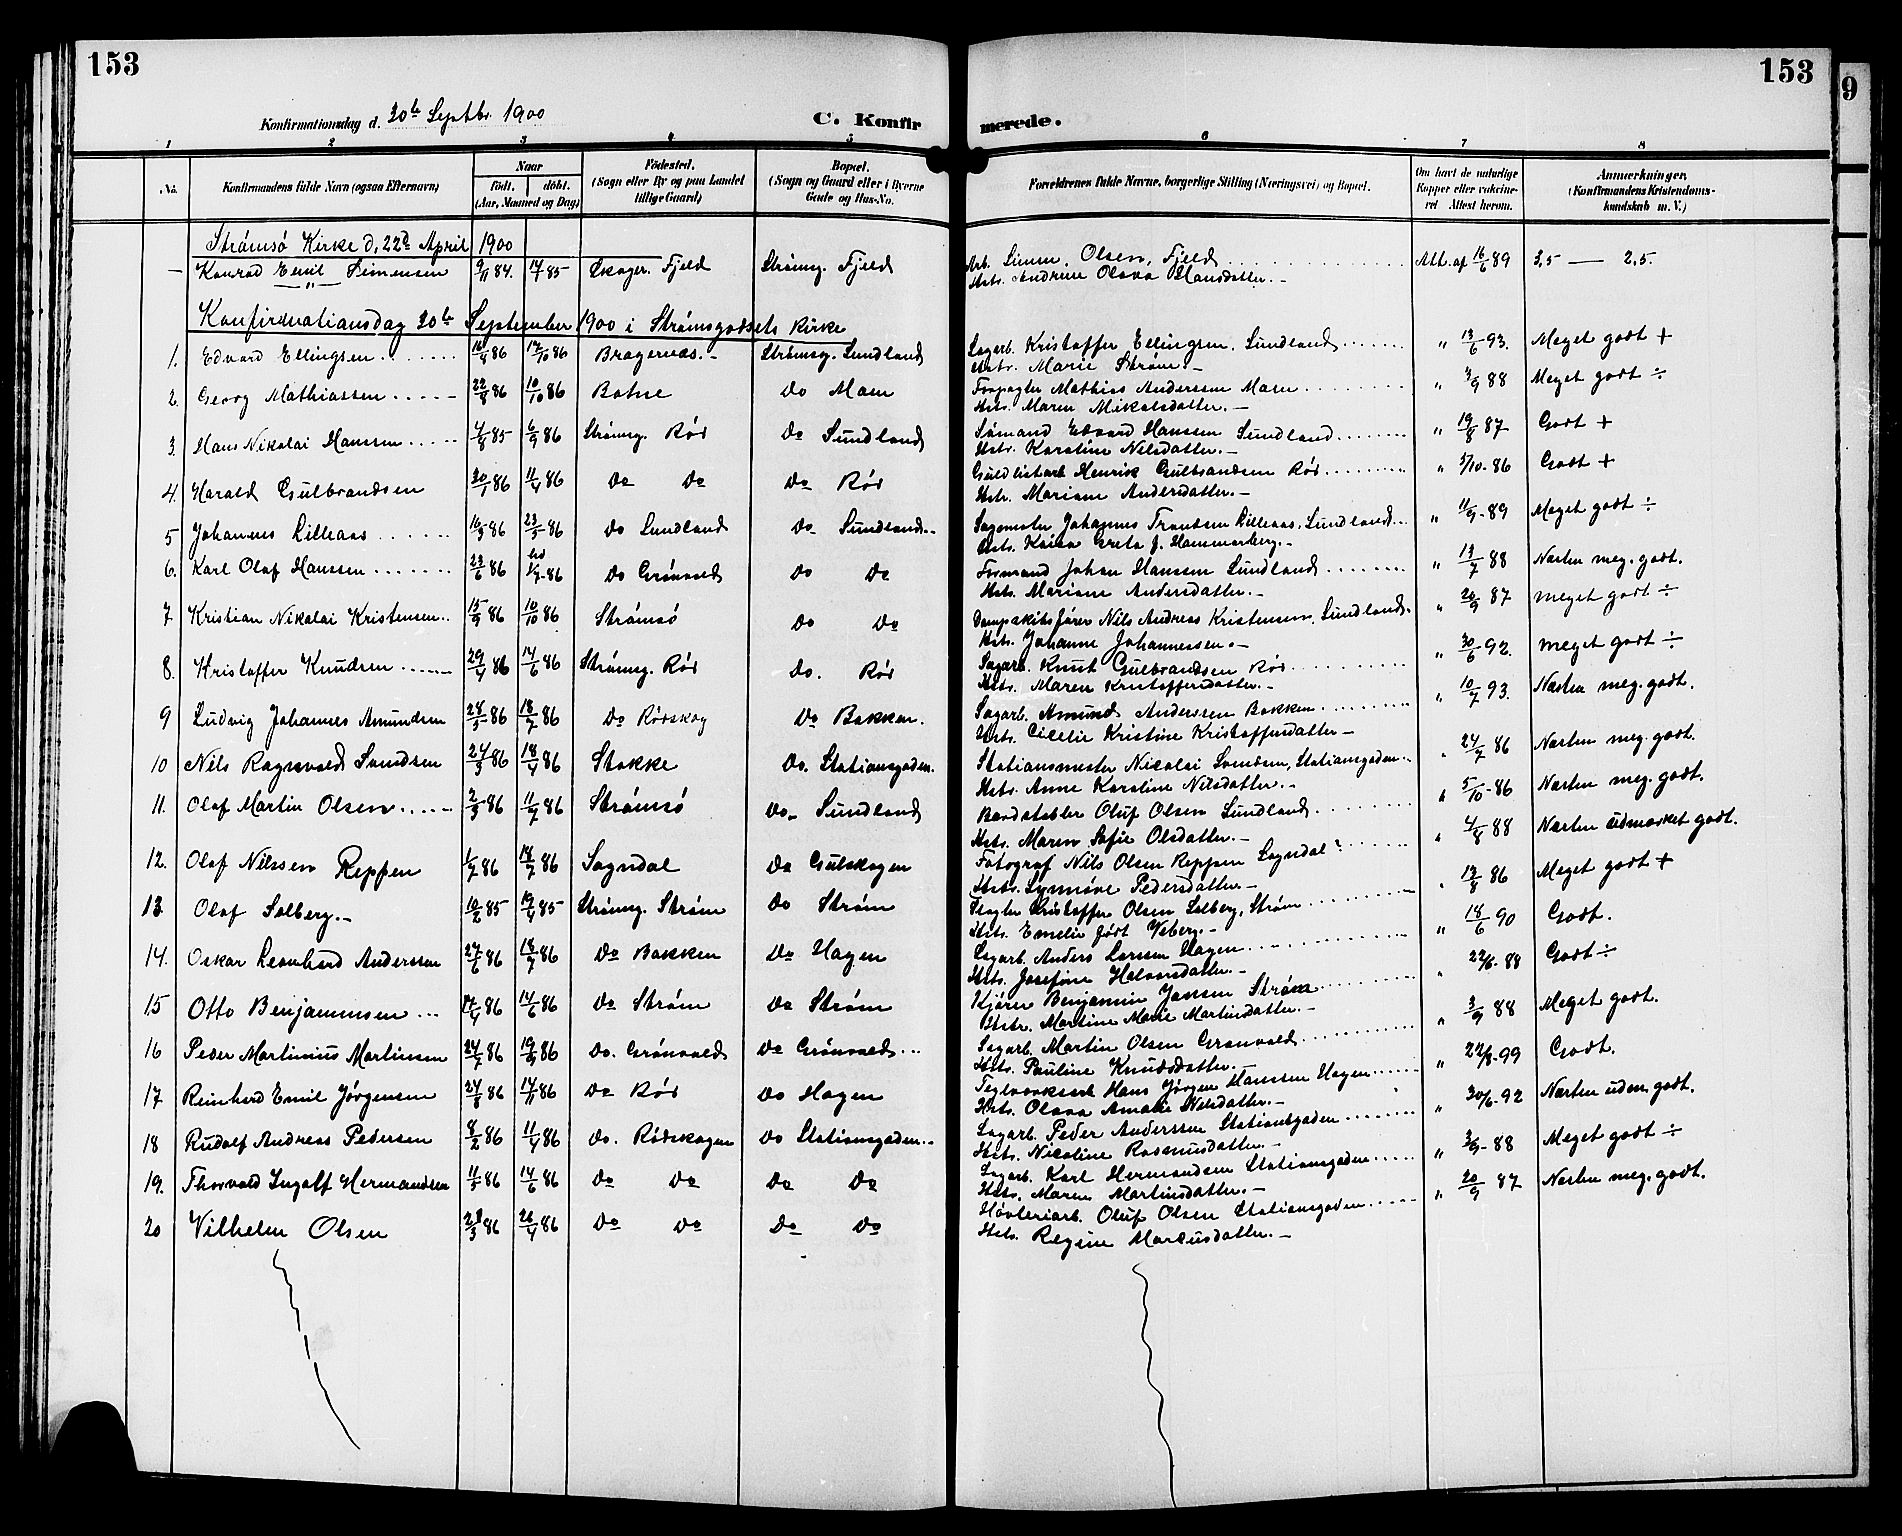 153
153
9
Konfirmationsdag d. 30te Septbr. 1900
C. Konfir
merede.
1 2 3 4 5 6 7 8
No.
Konfirmandens fulde Navn (ogsaa Efternavn)
Naar
født. døbt.
(Aar, Maaned og Dag)
Fødested.
(Sogn eller By og paa Landet
tillige Gaard)
Bopæl.
(Sogn og Gaard eller i Byerne
Gade og Hus-No.
Forældrenes fulde Navne, borgerlige Stilling (Næringsvei) og Bopæl.
Om havt de naturlige
Kopper eller vakcine-
ret Attest herom.
Anmerkninger,
(Konfirmandens Kristendoms-
kundskab m. V.)
Strømsø Kirke d. 22de April 1900
— Konrad Emil Simensen 9/11 84. 85 Skoger. Fjeld Strømsg. Fjeld Arb. Simen Olsen, Fjeld Att. af 16/6 89 3,5 — 2,5.
Hstr. Andrine Olava Hansdatter. —
Konfirmationsdag 30te September 1900 i Strømsgodsets Kirke
1. Edvard Ellingsen 86 17/10 86 Bragernæs. — Strømsg. Sundland Sagarb. Kristoffer Ellingsen, Sundland " 13/6 93. Meget godt +
Hstr. Marie Strøm. —
2. Georg Mathiassen 22/8 86 10/10 86 Botne do Maen Forpagter Mathias Anderssen Maen " 3/9 88 Meget godt ÷
Hstr. Maren Mikalsdatter. —
3. Hans Nikolai Hanssen 85 6/9 86 Strømsg. Rød do Sundland Sømand Edvard Hanssen Sundland " 19/8 87 Godt +
Hstr. Karoline Nilsdatter. —
4. Harald Gulbrandsen 30/1 86 11/4 86 do do do Rød Guldlistarb Henrik Gulbrandsen Rød " 5/10-86 Godt +
Hstr. Mariane Andersdatter. —
5 Johannes Lilleaas 10/3 86 23/5 86 do Sundland do Sundland Sagemster Johannes Trondsen Lilleaas, Sundland " 11/9-89 Meget godt ÷
Hstr. Kaisa Greta J. Hammarberg. —
6. Karl Olaf Hanssen 23/6 86 86 do Grønvold do do Formand Johan Hanssen Sundland " 13/7 88 Næsten meg. godt.
Hstr. Mariane Andersdatter. —
7 Kristian Nikolai Kristensen 15/9 86 10/10 86 Strømsø do do Dampskibsfører Nils Andreas Kristensen, Sundland " 20/9 87 Meget godt ÷
Hstr. Johanne Johannessen. —
8. Kristoffer Knudsen 29/4 86 14/6 86 Strømsg. Rød do. Rød Sagarb. Knut Gulbrandsen Rød " 30/6 92. Meget godt ÷
Hstr. Maren Kristoffersdatter. —
9 Ludvig Johannes Amundsen 28/5 86 18/7 86 do Rødskog do Bakken. Sagarb. Amund Anderssen Bakken " 10/7 93. Næsten meg. godt.
Hstr. Cicelie Kristine Kristoffersdatter —
10 Nils Ragnvald Svendsen 24/3 86 18/4 86 Stokke do. Stationsgaden. Stationsmester Nicolai Svendsen, Stationsgaden " 24/7 86 Næsten meg. godt.
Hstr. Anne Karoline Nilsdatter. —
11. Olaf Martin Olsen 2/3 86 11/7 86 Strømsø do. Sundland Bordstabler Oluf Olsen Sundland " 5/10-86 Næsten meg. godt.
Hstr. Maren Sofie Olsdatter. —
12. Olaf Nilssen Reppen 1/7 86 18/7 86 Sogndal do Gulskogen Fotograf Nils Olsen Reppen Sogndal " 4/8 88 Næsten udmærket godt.
Hstr. Synnøve Pedersdatter —
13. Olaf Solberg. — 10/2 85 19/4 85 Strømsg. Strøm do Strøm Kristoffer Olsen Solberg, Strøm " 13/8 86 Meget godt +
Hstr. Emelie født Viberg. —
14. Oskar Leonhard Anderssen 27/6 86 18/7 86 do Bakken do Hagen Sagarb. Anders Larssen Hagen " 18/6 90 Godt.
Hstr. Josefine Halvorsdatter. —
15 Otto Benjaminsen 17/4 86 14/6 86 do Strøm do Strøm Kjører Benjamin Jansen Strøm " 22/6-88 Godt ÷
Hstr. Martine Marie Martinsdatter. —
16 Peder Martinius Martinsen 24/7 86 19/9 86 do. Grønvold do Grønvold Sagarb. Martin Olsen Grønvold " 3/9 88 Meget godt.
Hstr. Pauline Knudsdatter. —
17 Reinhard Emil Jørgensen 24/8 86 14/11 86 do Rød do Hagen Teglværksarb Hans Jørgen Hanssen Hagen " 22/8-99 Godt.
Hstr. Olava Amalie Nilsdatter. —
18 Rudolf Andreas Pedersen 8/2 86 11/4 86 do. Rødskogen do Stationsgaden Sagarb. Peder Anderssen Stationsgaden " 30/6-92 Næsten udm. godt.
Hstr. Nicoline Rasmusdatter. —
19. Thorvald Ingolf Hermandsen 11/5 86 14/6 86 do do do do Sagarb. Karl Hermandsen Stationsgaden " 3/9-88 Meget godt ÷
Hstr. Maren Martinsdatter. —
20 Vilhelm Olsen 28/3 86 26/4 86 do do do do Høvleriarb. Oluf Olsen Stationsgaden " 20/9 87 Næsten meg. godt.
Hstr. Regine Marcusdatter. —